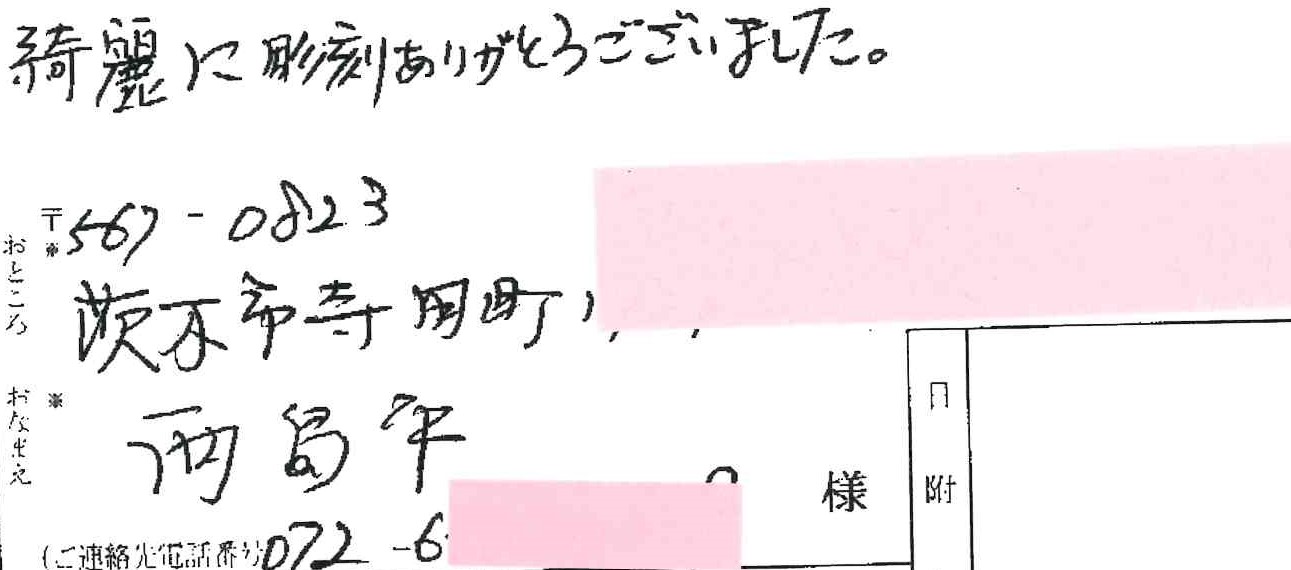 綺麗に彫刻ありがとうございました。
〒
※
567-0823
おところ
茨木市寺田町
おなまえ
※
様
日附
(ご連絡先電話番号 072-6